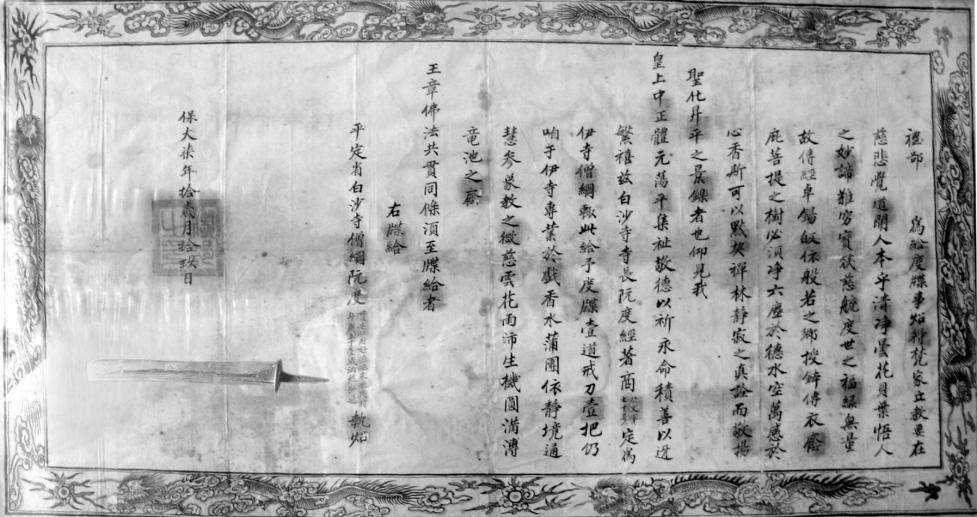 禮部 爲給度牒事炤得梵家立教要在
慈悲覺道開人本乎清凈曇花貝葉悟人
之妙諦難窮寶筏慈航度世之福緣無量
故傳經卓錫皈依般若之鄉授鉢傳衣廕
庇菩提之樹必須凈六塵於德水空萬慮於
心香斯可以默契禪林靜寂之真詮而敬揚
聖化昇平之景籙者也仰見我
皇上中正體元蕩平集祉敬德以祈永命積善以迓
繁禧茲白沙寺寺長阮度經著商定爲
伊寺僧綱輒此給予度牒壹道戒刀壹把仍
咱于伊寺專業於戲香水蒲團依靜境通
慧參象教之微慈雲花雨沛生機圓滿溥
竜池之廕
王章佛法共貫同條湏至牒給者
右牒給
平定省白沙寺僧綱阮度 執炤
保大柒年拾貳月拾玖日